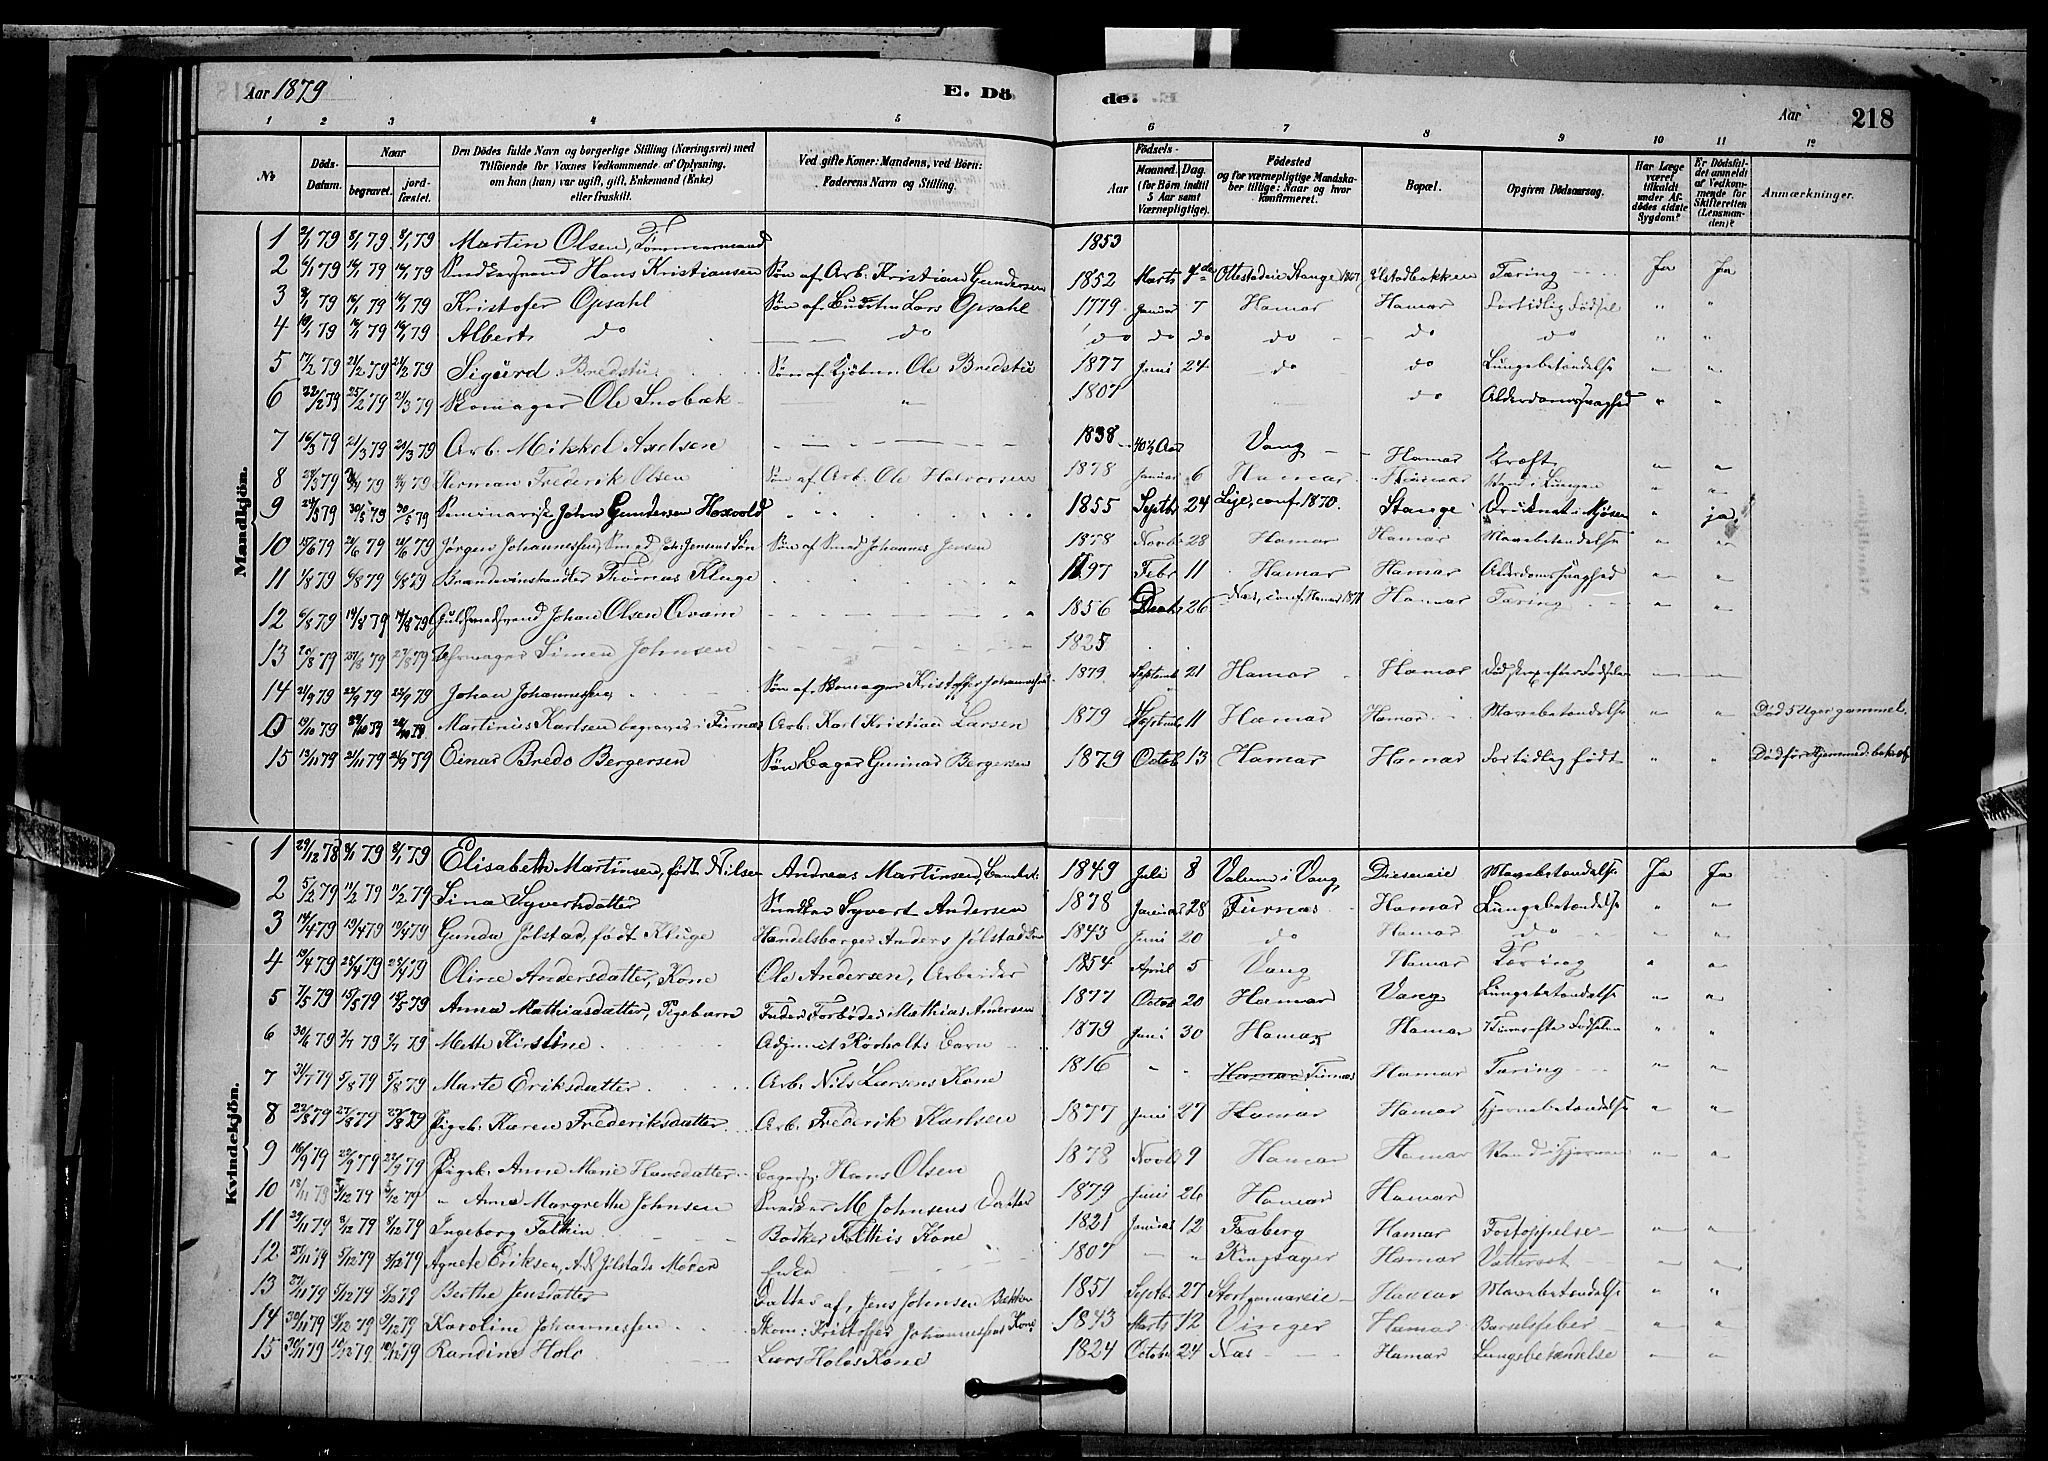 Aar 1879 E. Dö
de. Aar 218
1 2 3 4 5 6 7 8 9 10 11 12
№ Döds-Datum. Naar begravet. jord-fæstet. Den Dödes fulde Navn og borgerlige Stilling (Næringsvei) med Tilföiende for Voxnes Vedkommende af Oplysning, om han (hun) var ugift, gift, Enkemand (Enke) eller fraskilt. Ved gifte Koner: Mandens, ved Börn: Faderens Navn og Stilling. Aar Födsels- Maaned. Dag. (for Börn indtil 5 Aar samt Værnepligtige). Födested og for værnepligtige Mandskaber tillige: Naar og hvor konfirmeret. Bopæl. Opgiven Dödsaarsag. Har Læge været tilkaldt under Afdödes sidste Sygdom? Er Dödsfaldet anmeldt af Vedkommende for Skifteretten (Lensmanden)? Anmærkninger.
Mandkjön.
1 2/1 79 8/1 79 8/1 79 Martin Olsen, Tømmermand 1853
2 6/1 79 16/1 79 16/1 79 Snedkersvend Hans Kristiansen Søn af Arb. Kristian Gundersen 1852 Marts Ottestadeie Stange Tæring Ja Ja
3 8/1 79 16/1 79 16/1 79 Kristofer Opsahl Søn af Lars Opsahl 1779 Januar 7 Hamar Hamar Fortidlig Fødsel " "
4 10/1 79 16/1 79 16/1 79 Albert do do do do do do do do " "
5 17/2 79 21/2 79 21/2 79 Sigurd Bredstu Søn af Kjøbm. Ole Bredstu 1877 Juni 24 do do Lungebetændelse " "
6 22/2 79 25/2 79 21/3 79 Skomager Ole Snobæk " 1807 do Alderdomssvaghed " "
7 16/3 79 21/3 79 21/3 79 Arb. Mikkel Axelsen 1838 40½ Aar Vang Hamar Kræft " "
8 28/3 79 79 79 Herman Frederik Olsen Søn af Arb. Ole Halvorsen 1878 Januar 6 Hamar Hamar Vand i Lungen " "
9 79 30/5 79 30/5 79 Seminarist John Gundersen Hoxvold 1855 Septb 24 conf. 1870. Stange Druknet i Mjøsen " ja.
10 15/6 79 21/6 79 21/6 79 Jørgen Johannessen, Smed Joh: Jensens Søn Søn af Smed Johannes Jensen 1878 Novb. 28 Hamar Hamar Mavebetændelse " "
11 1/8 79 6/8 79 6/8 79 Brændevinshandler Thomas Kluge 1797 Febr 11 Hamar Hamar Alderdomssvaghed " "
12 6/8 79 14/8 79 14/8 79 Guldsmedsvend Johan Olsen Qvam 1856 26 Næs, conf. Hamar 1871 Hamar Tæring " "
13 20/8 79 27/8 79 27/8 79 Simen Johnsen 1825
14 21/9 79 22/9 79 22/9 79 Johan Johannessen Søn af Skomager Kristoffer Johannessen 1879 Septemb 21 Hamar Hamar Død strax efter Fødselen
0 19/10 79 24/10 79 24/10 79 Martinius Karlsen begravet i Furnæs Arb. Karl Kristian Larsen 1879 Septemb 11 Hamar Hamar Mavebetændelse " " Død 5 Uger gammel.
15 13/11 79 21/11 79 21/11 79 Einar Bredo Bergersen Søn Bager Gunnar Bergersen 1879 Octob 13 Hamar Hamar Fortidlig født " " Død før Hjemmed: bekræft
Kvindekjön.
1 29/12 78 8/1 79 8/1 79 Elisabeth Martinsen, født Nilsen Andreas Martinsen, 1849 Juli 8 Valum i Vang Diseneie Mavebetændelse Ja Ja
2 5/2 79 11/2 79 11/2 79 Sina Syvertsdatter Snedker Syvert Andersen 1878 Januar 28 Furnæs Hamar Lungebetændelse " "
3 14/4 79 19/4 79 19/4 79 Gunda Jølstad, født Kluge Handelsborger Anders Jølstads Kone 1843 Juni 20 do Hamar do " "
4 19/4 79 25/4 79 25/4 79 Oline Andersdatter, Kone Ole Andersen, Arbeider 1854 April 5 Vang Hamar Tæring " "
5 7/5 79 15/5 79 15/5 79 Anna Mathiasdatter, Pigebarn Fader Forbøder Mathias Andersen 1877 Octob 20 Hamar Vang Lungebetændelse " "
6 30/6 79 2/7 79 2/7 79 Mette Kirstine Adjunct Rørholts Barn 1879 Juni 30 Hamar Hamar efter Fødselen " "
7 31/7 79 5/8 79 5/8 79 Marte Eriksdatter Arb. Nils Larsens Kone 1816 " " Hamar Furnæs Hamar Tæring " "
8 22/8 79 27/8 79 27/8 79 Pigeb. Karen Frederiksdatter Arb. Frederik Karlsen 1877 Juni 27 Hamar Hamar Hjernebetændelse " "
9 16/9 79 22/9 79 22/9 79 Pigeb. Anne Marie Hansdatter Hans Olsen 1878 Novb 9 Hamar Hamar Vand i Hjernen " "
10 18/11 79 5/12 79 5/12 79 " Anna Margrethe Johnsen Snedker M. Johnsens Datter 1879 Juni 26 Hamar Hamar
11 29/11 79 8/12 79 8/12 79 Ingeborg Fathin Bødker Fathis Kone 1821 Januar 12 Faaberg Hamar Forstoppelse " "
12 27/11 79 5/12 79 5/12 79 Agnete Eriksen, A. Jølstads Moder Enke 1807 " Ringsager Hamar Vattersot " "
13 27/11 79 5/12 79 5/12 79 Berthe Jensdatter Datter af, Jens Johnsen Bækken 1851 Septbr 27 Hamar Mavebetændelse " "
14 30/11 79 9/12 79 9/12 79 Karoline Johannessen Skom: Kristoffer Johannessens Kone 1843 Marts 12 Vinger Hamar Barselfeber " "
15 30/11 79 10/12 79 10/12 79 Randine Holo Lars Holos Kone 1824 Octob 24 Næs Hamar Lungebetændelse " "